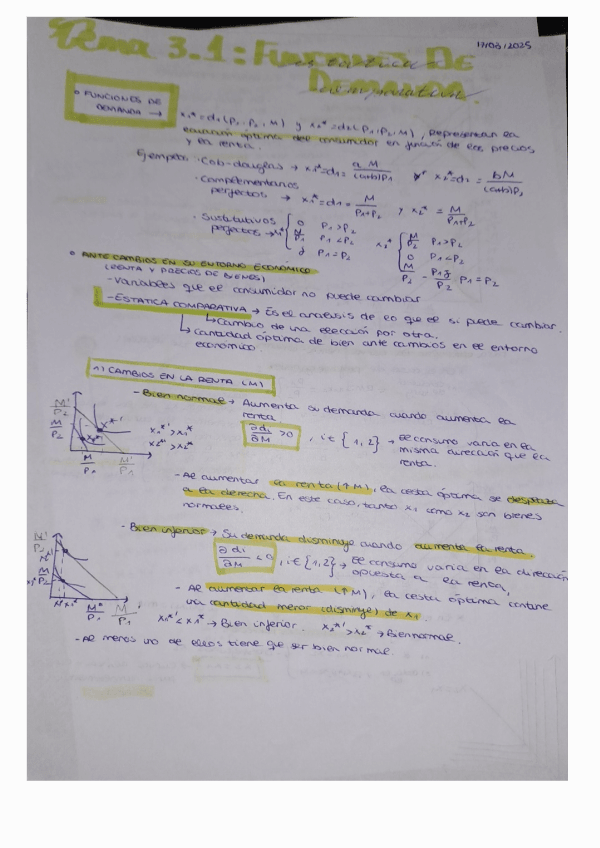 Tema 3.1: Funciones De Demanda
estática comparativa
17/03/2025
• FUNCIONES DE DEMANDA → x₁*=d₁(P₁,P₂,M) y x₂*=d₂(P₁,P₂,M), Representan la
elección óptima del consumidor en función de los precios
y la renta.
Ejemplos · Cob-douglas → x₁*=d₁= aM/(a+b)P₁ y x₂*=d₂= bM/(a+b)P₂
· Complementarios perfectos → x₁*=d₁= M/P₁+P₂ y x₂*= M/P₁+P₂
· Sustitutivos perfectos → x₁* { 0 P₁>P₂
P₁<P₂
y P₁=P₂
x₂* { M/P₂ P₁>P₂
0 P₁<P₂
M/P₂ - P₁y/P₂ P₁=P₂
• ANTE CAMBIOS EN SU ENTORNO ECONÓMICO
(RENTA Y PRECIOS DE BIENES)
- Variables que el consumidor no puede cambiar
- ESTATICA COMPARATIVA → Es el analisis de lo que el si puede cambiar.
↳ Cambio de una elección por otra.
↳ Cantidad óptima de bien ante cambios en el entorno
económico.
1) CAMBIOS EN LA RENTA (M)
- Bien normal → Aumenta su demanda cuando aumenta la
renta.
∂di/∂M >0 , i ∈ {1,2} → El consumo varia en la
misma dirección que la
renta.
M'/P₂
M/P₂
x*'
x*
M/P₁ M'/P₁
x₁*' > x₁*
x₂*' > x₂*
- Al aumentar la renta (↑M), la cesta óptima se desplaza
a la derecha. En este caso, tanto x₁ como x₂ son bienes
normales.
- Bien inferior → Su demanda disminuye cuando aumenta la renta.
∂di/∂M <0 , i ∈ {1,2} → El consumo varia en la dirección
opuesta a la renta.
- Al aumentar la renta (↑M), la cesta óptima contiene
una cantidad menor (disminuye) de x₁
x₁*' < x₁* → Bien inferior. x₂*' > x₂* → Bien normal.
- Al menos uno de ellos tiene que ser bien normal.